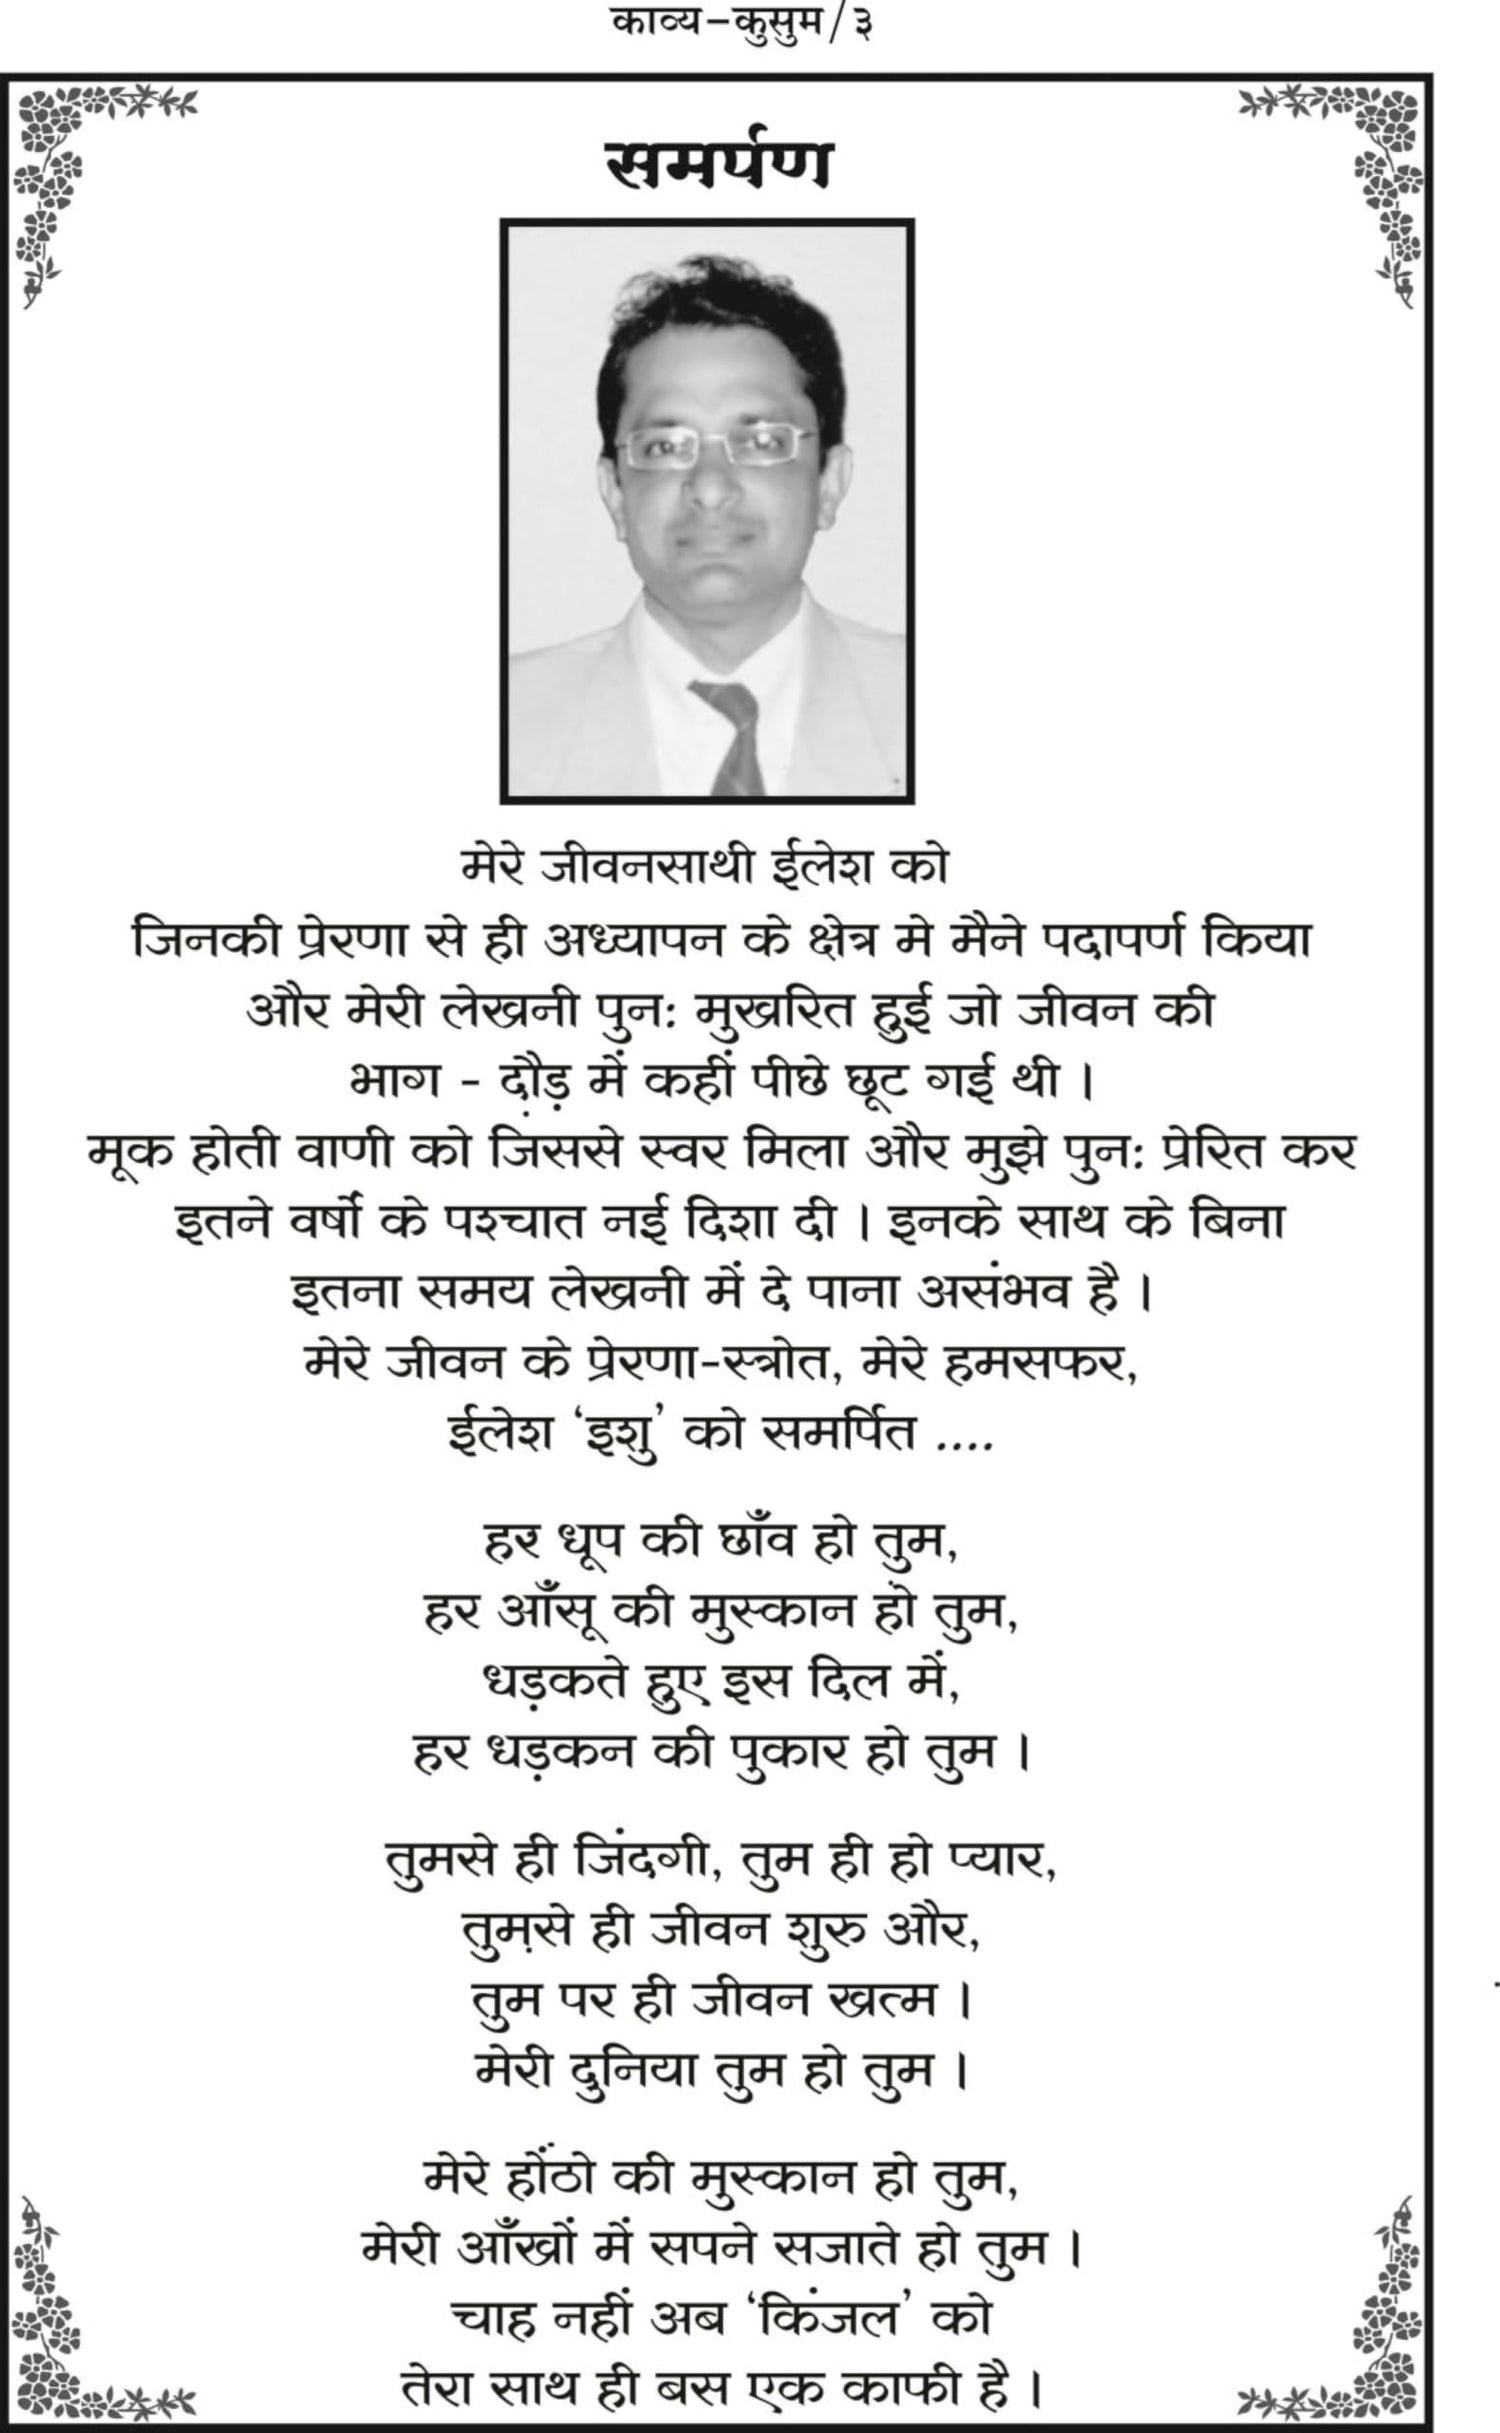 काव्य-कुसुम/३
समर्पण
मेरे जीवनसाथी ईलेश को
जिनकी प्रेरणा से ही अध्यापन के क्षेत्र मे मैने पदापर्ण किया
और मेरी लेखनी पुनः मुखरित हुई जो जीवन की
भाग - दौड़ में कहीं पीछे छूट गई थी ।
मूक होती वाणी को जिससे स्वर मिला और मुझे पुनः प्रेरित कर
इतने वर्षो के पश्चात नई दिशा दी । इनके साथ के बिना
इतना समय लेखनी में दे पाना असंभव है ।
मेरे जीवन के प्रेरणा-स्त्रोत, मेरे हमसफर,
ईलेश ‘इशु’ को समर्पित ....
हर धूप की छाँव हो तुम,
हर आँसू की मुस्कान हो तुम,
धड़कते हुए इस दिल में,
हर धड़कन की पुकार हो तुम ।
तुमसे ही जिंदगी, तुम ही हो प्यार,
तुमसे ही जीवन शुरु और,
तुम पर ही जीवन खत्म ।
मेरी दुनिया तुम हो तुम ।
मेरे होंठो की मुस्कान हो तुम,
मेरी आँखों में सपने सजाते हो तुम ।
चाह नहीं अब ‘किंजल’ को
तेरा साथ ही बस एक काफी है ।